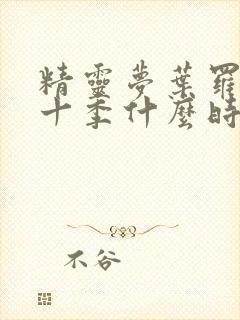 精靈夢葉羅
十季什麼時
不谷